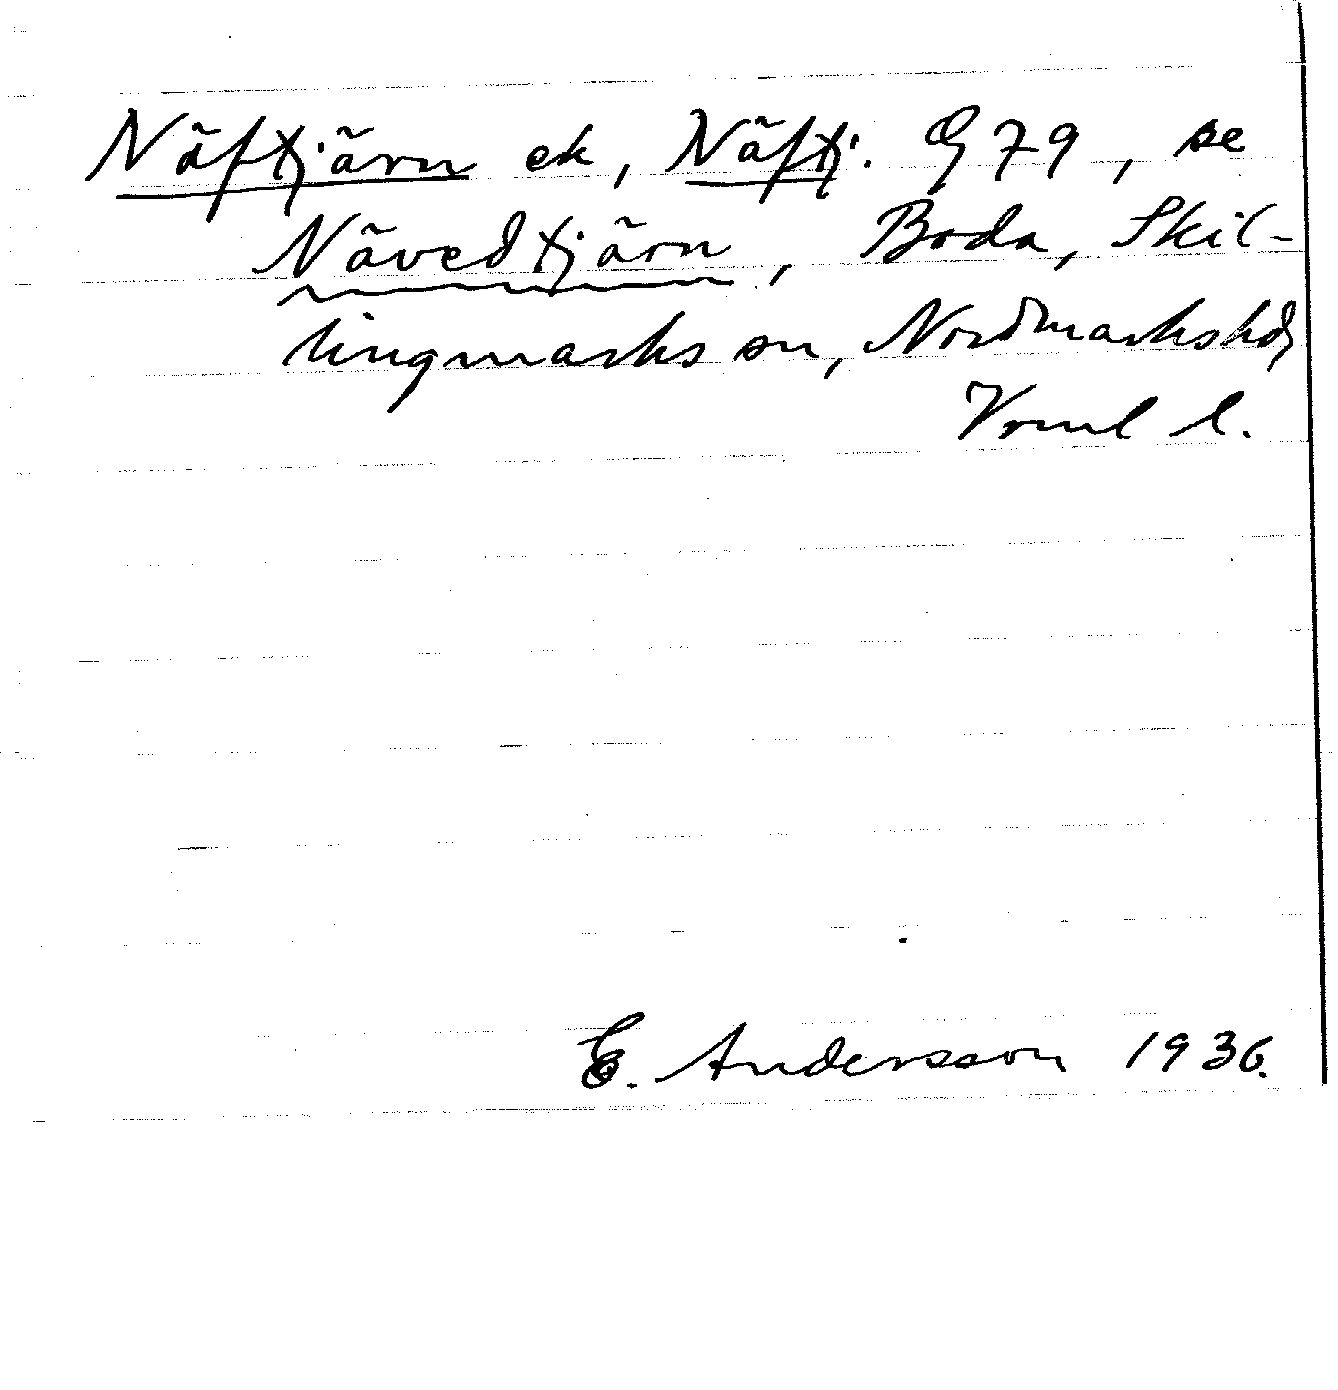 Näftjärn ek, Näftj. G 79, se
Nävedtjärn, Boda, Skil-
lingmarks sn, Nordmarks hd,
Vrml l.
E. Andersson 1936.